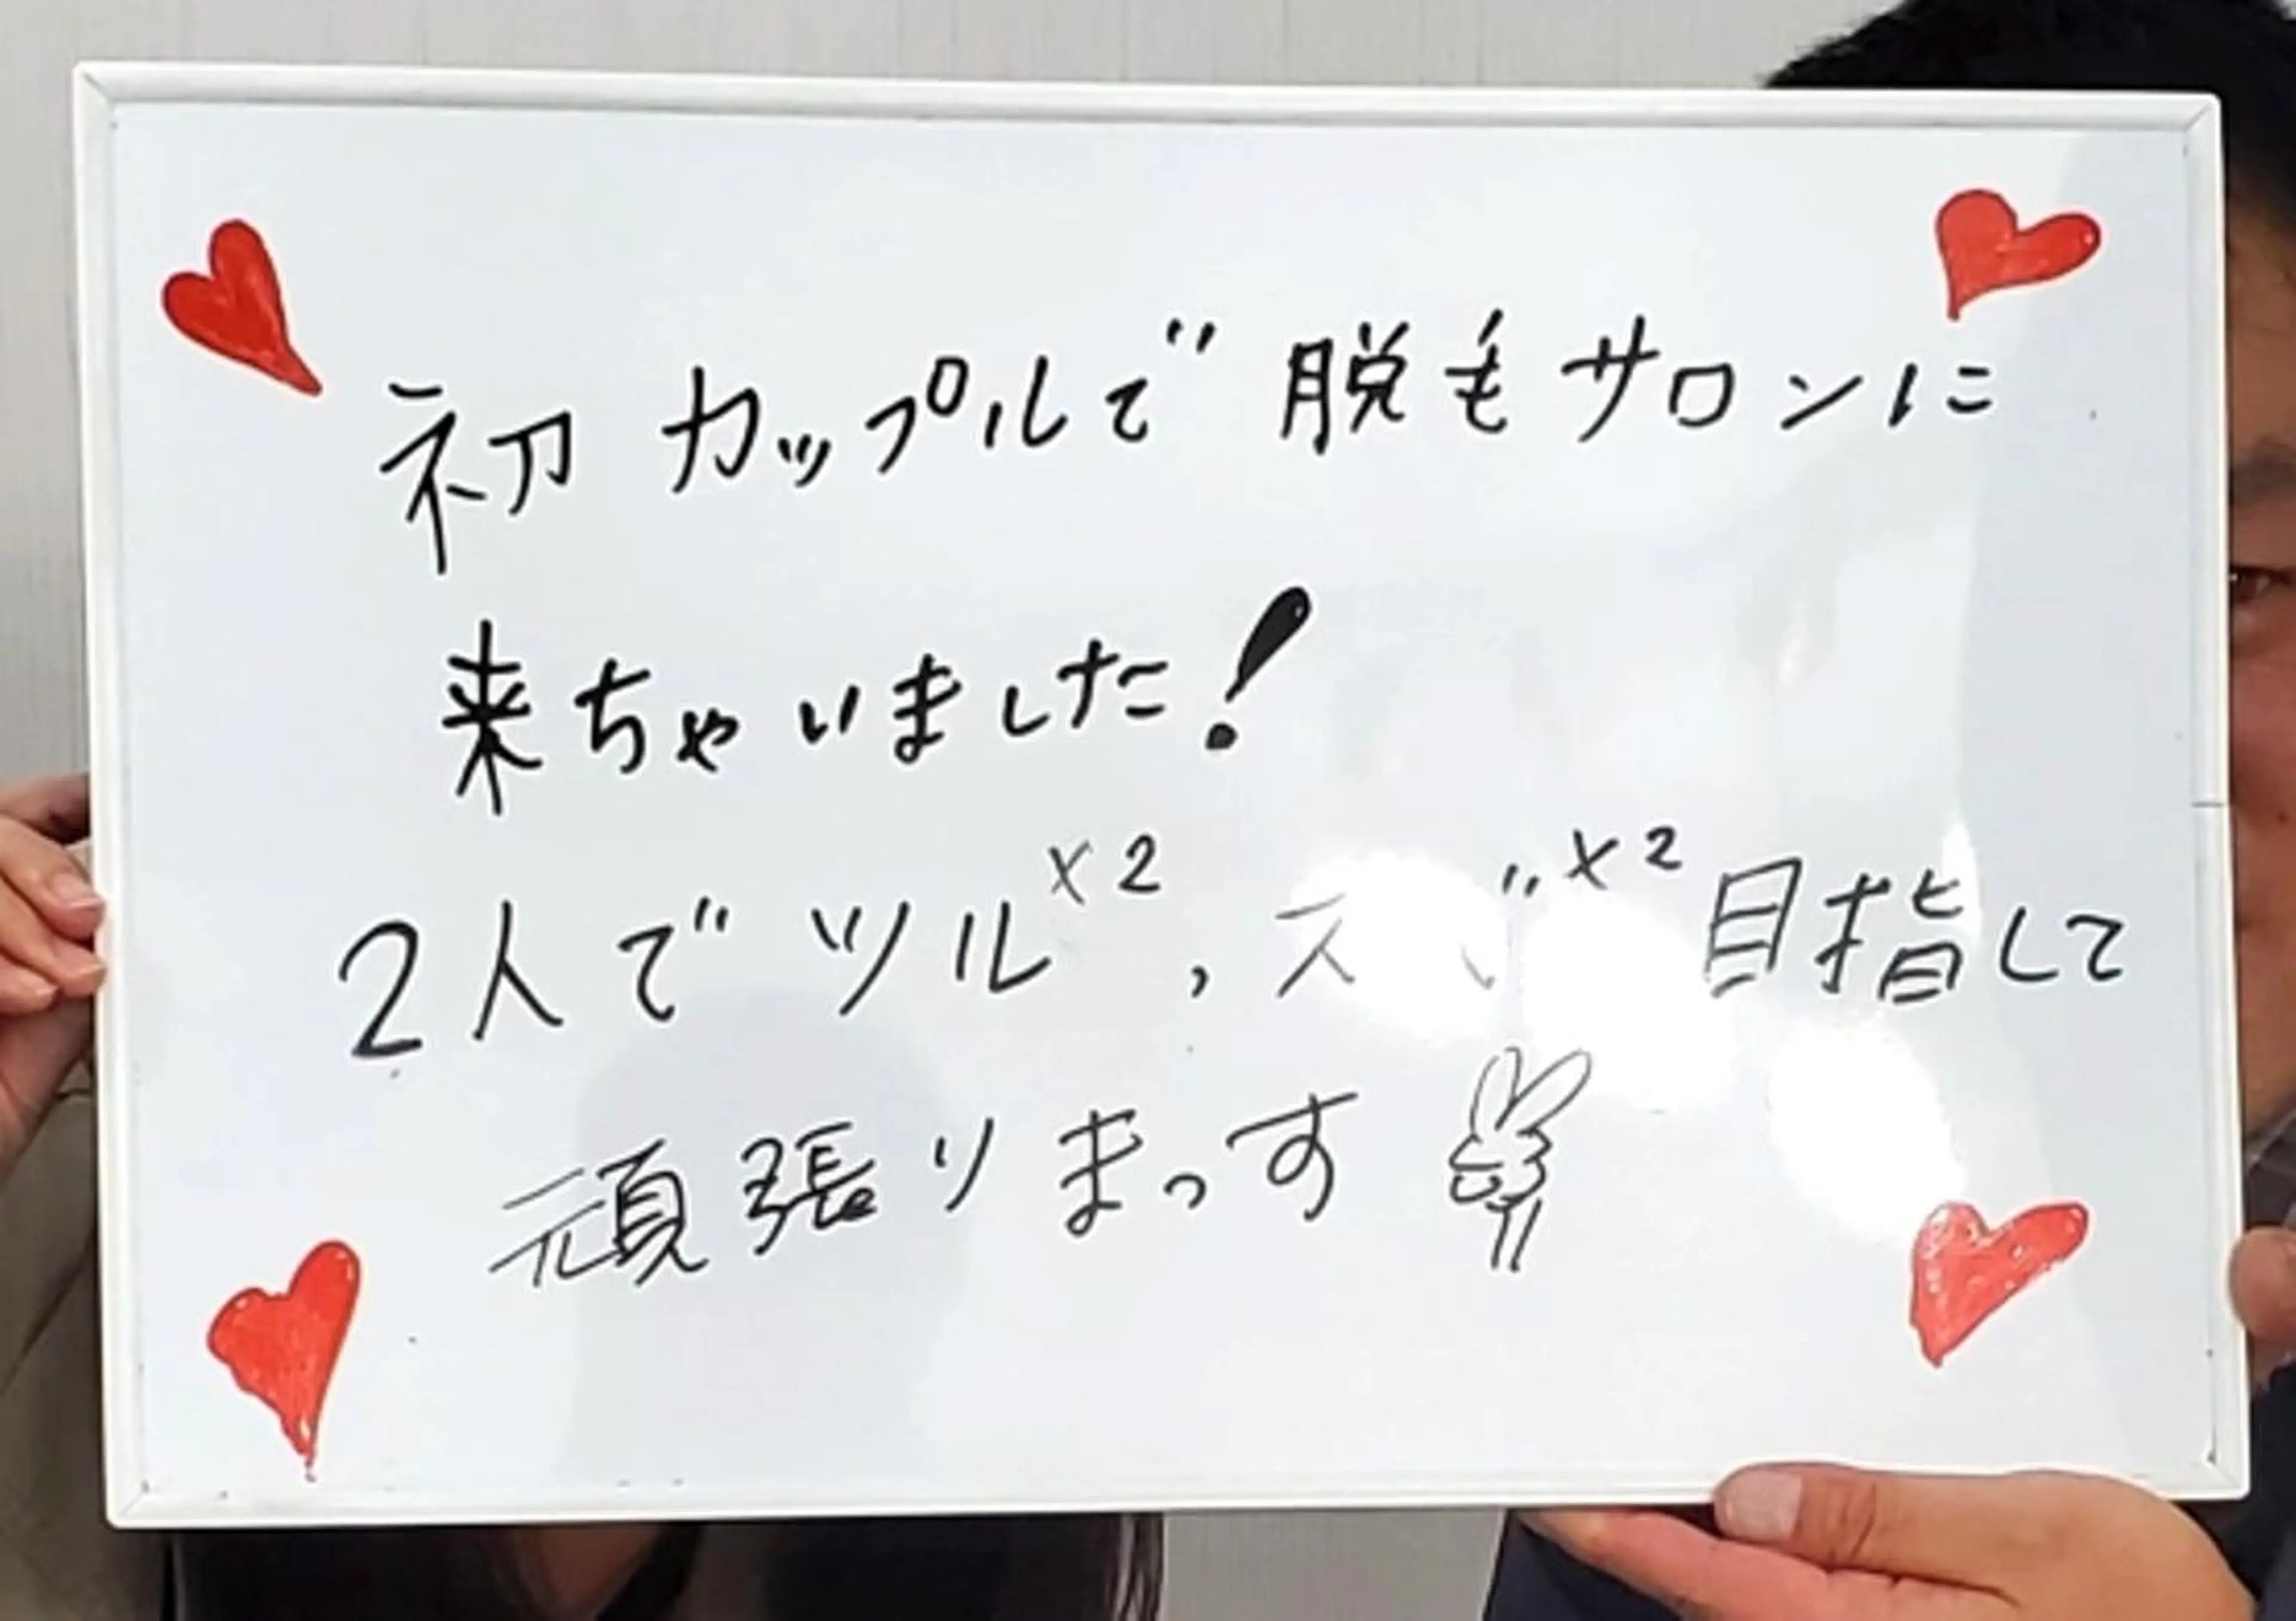 初 カップルで 脱毛サロンに
来ちゃいました!
2人で ツル×2、 ×2 目指して
頑張りまっす